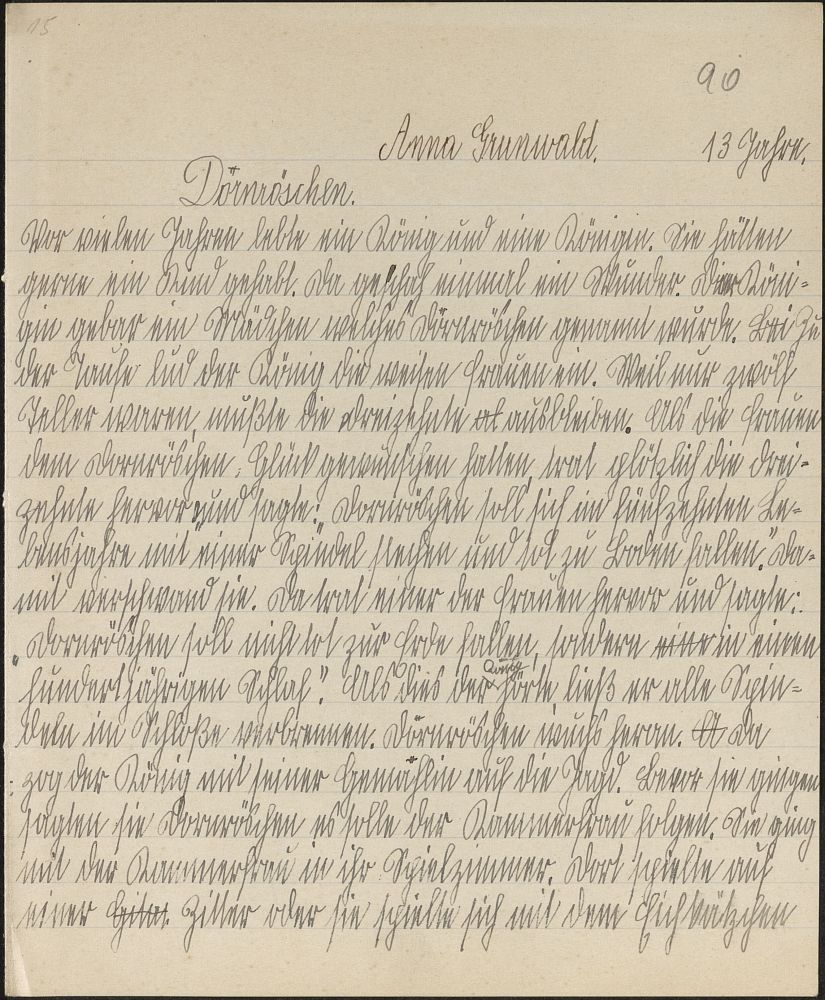 15
90
Anna Grunwald. 13 Jahre.
Dörnröschen.
Vor vielen Jahren lebte ein König und eine Königin. Sie hätten
gerne ein Kind gehabt. Da geschah einmal ein Wunder. Die Köni-
gin gebar ein Mädchen welches Dörnröschen genannt wurde. Bei Zu
der Taufe lud der König die weisen Frauen ein. Weil nur zwölf
Teller waren, mußte die dreizehnte ausbleiben. Als die Frauen
dem Dornröschen Glück gewünschen hatten, trat plötzlich die drei-
zehnte hervor und sagte: „Dornröschen soll sich im fünfzehnten Le-
bensjahre mit einer Spindel stechen und tot zu Boden fallen." Da-
mit verschwand sie. Da trat einer der Frauen hervor und sagte:
„Dornröschen soll nicht tot zur Erde fallen, sondern eine in einen
hundertjährigen Schlaf". Als dies der König hörte, ließ er alle Spin-
deln im Schloße verbrennen. Dörnröschen wuchs heran. A Da
zog der König mit seiner Gemahlin auf die Jagd. Bevor sie gingen
sagten sie Dornröschen es solle der Kammerfrau folgen. Sie ging
mit der Kammerfrau in ihr Spielzimmer. Dort spielte auf
einer Gitar. Zitter oder sie spielte sich mit dem Eichkätzchen